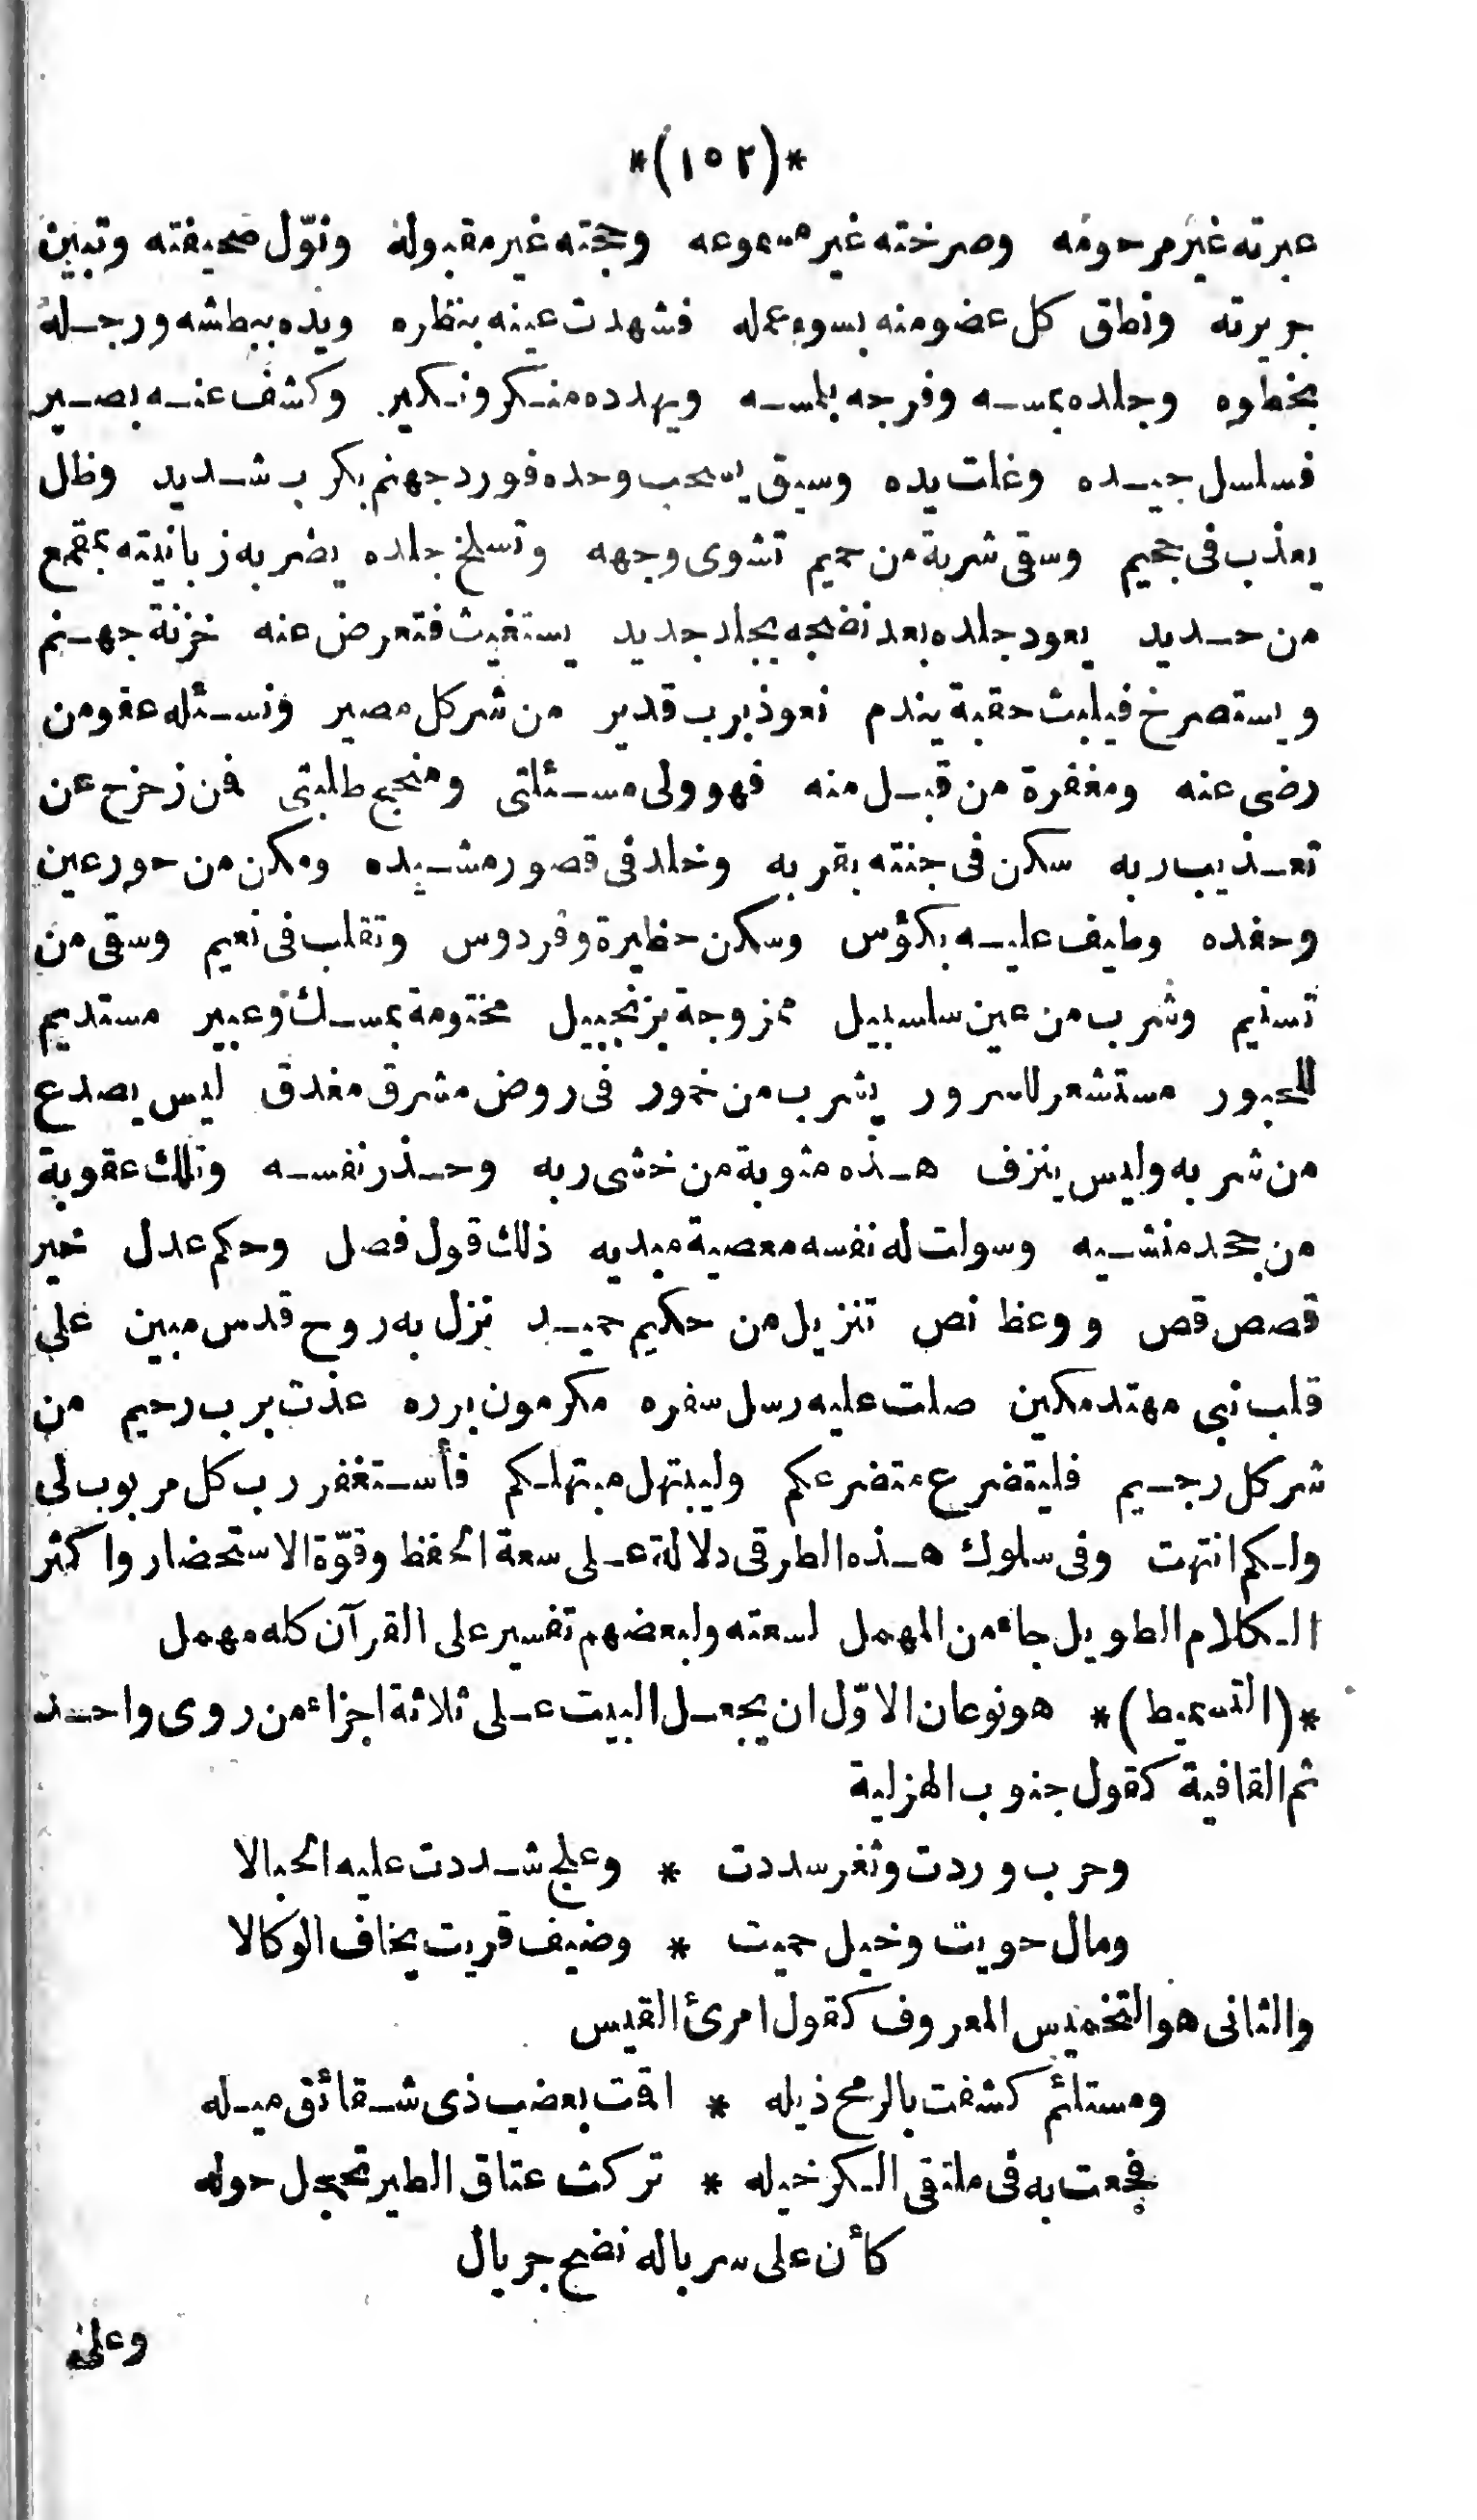 *(١٥٢)*
عبرته غير مرحومه وصرخته غير مسموعه وحجته غير مقبوله ونوّل صحيفته وتبين
جريرته ونطق كل عضو منه بسوء عمله فشهدت عينه بنظره ويده ببطشه ورجله
بخطوه وجلده بمسه وفرجه بلمسه ويهدده منكر ونكير وكشف عنه بصير
فسلسل جيده وغلت يده وسيق يسحب وحده فورد جهنم بكرب شديد وظل
يعذب فى جحيم وسقى شربة من حميم تشوى وجهه وتسلخ جلده يضربه زبانيته بمقمع
من حديد يعود جلده بعد نضجه بجلد جديد يستغيث فتعرض عنه خزنة جهنم
ويستصرخ فيلبث حقبة يندم نعوذ برب قدير من شر كل مصير ونسئله عفو من
رضى عنه ومغفرة من قبل منه فهو ولى مسئلتى ومنجح طلبتى فمن زحزح عن
تعذيب ربه سكن فى جنته بقربه وخلد فى قصور مشيده ومكن من حور عين
وحفده وطيف عليه بكؤس وسكن حظيرة وفردوس وتقلب فى نعيم وسقى من
تسنيم وشرب من عين سلسبيل ممزوجة بزنجبيل مختومة بمسك وعبير مستديم
للحبور مستشعر للسرور يشرب من خمور فى روض مشرق مغدق ليس يصدع
من شربه وليس ينزف هذه مثوبة من خشى ربه وحذر نفسه وتلك عقوبة
من جحد منشيه وسولت له نفسه معصية مبديه ذلك قول فصل وحكم عدل خير
قصص قص ووعظ نص تنزيل من حكيم حميد نزل به روح قدس مبين على
قلب نبى مهتد مكين صلت عليه رسل سفره مكرمون برره عذت برب رحيم من
شر كل رجيم فليتضرع متضرعكم وليبتهل مبتهلكم فأستغفر رب كل مربوب لى
ولكم انتهت وفى سلوك هذه الطرق دلالة على سعة الحفظ وقوّة الاستحضار واكثر
الكلام الطويل جاء من المهمل لسعته ولبعضهم تفسير على القرآن كله مهمل
*(التسميط)* هو نوعان الاوّل ان يجعل البيت على ثلاثة اجزاء من روى واحد
ثم القافية كقول جنوب الهزلية
وحرب وردت وثغر سددت * وعلج شددت عليه الحبالا
ومال حويت وخيل حميت * وضيف قريت يخاف الوكالا
والثانى هو التخميس المعروف كقول امرئ القيس
ومستلئم كشفت بالرمح ذيله * اقت بعضب ذى شقائق ميله
فجعت به فى ملتقى الكر خيله * تركت عتاق الطير تحجل حوله
كأن على سرباله نضح جريال
وعلى